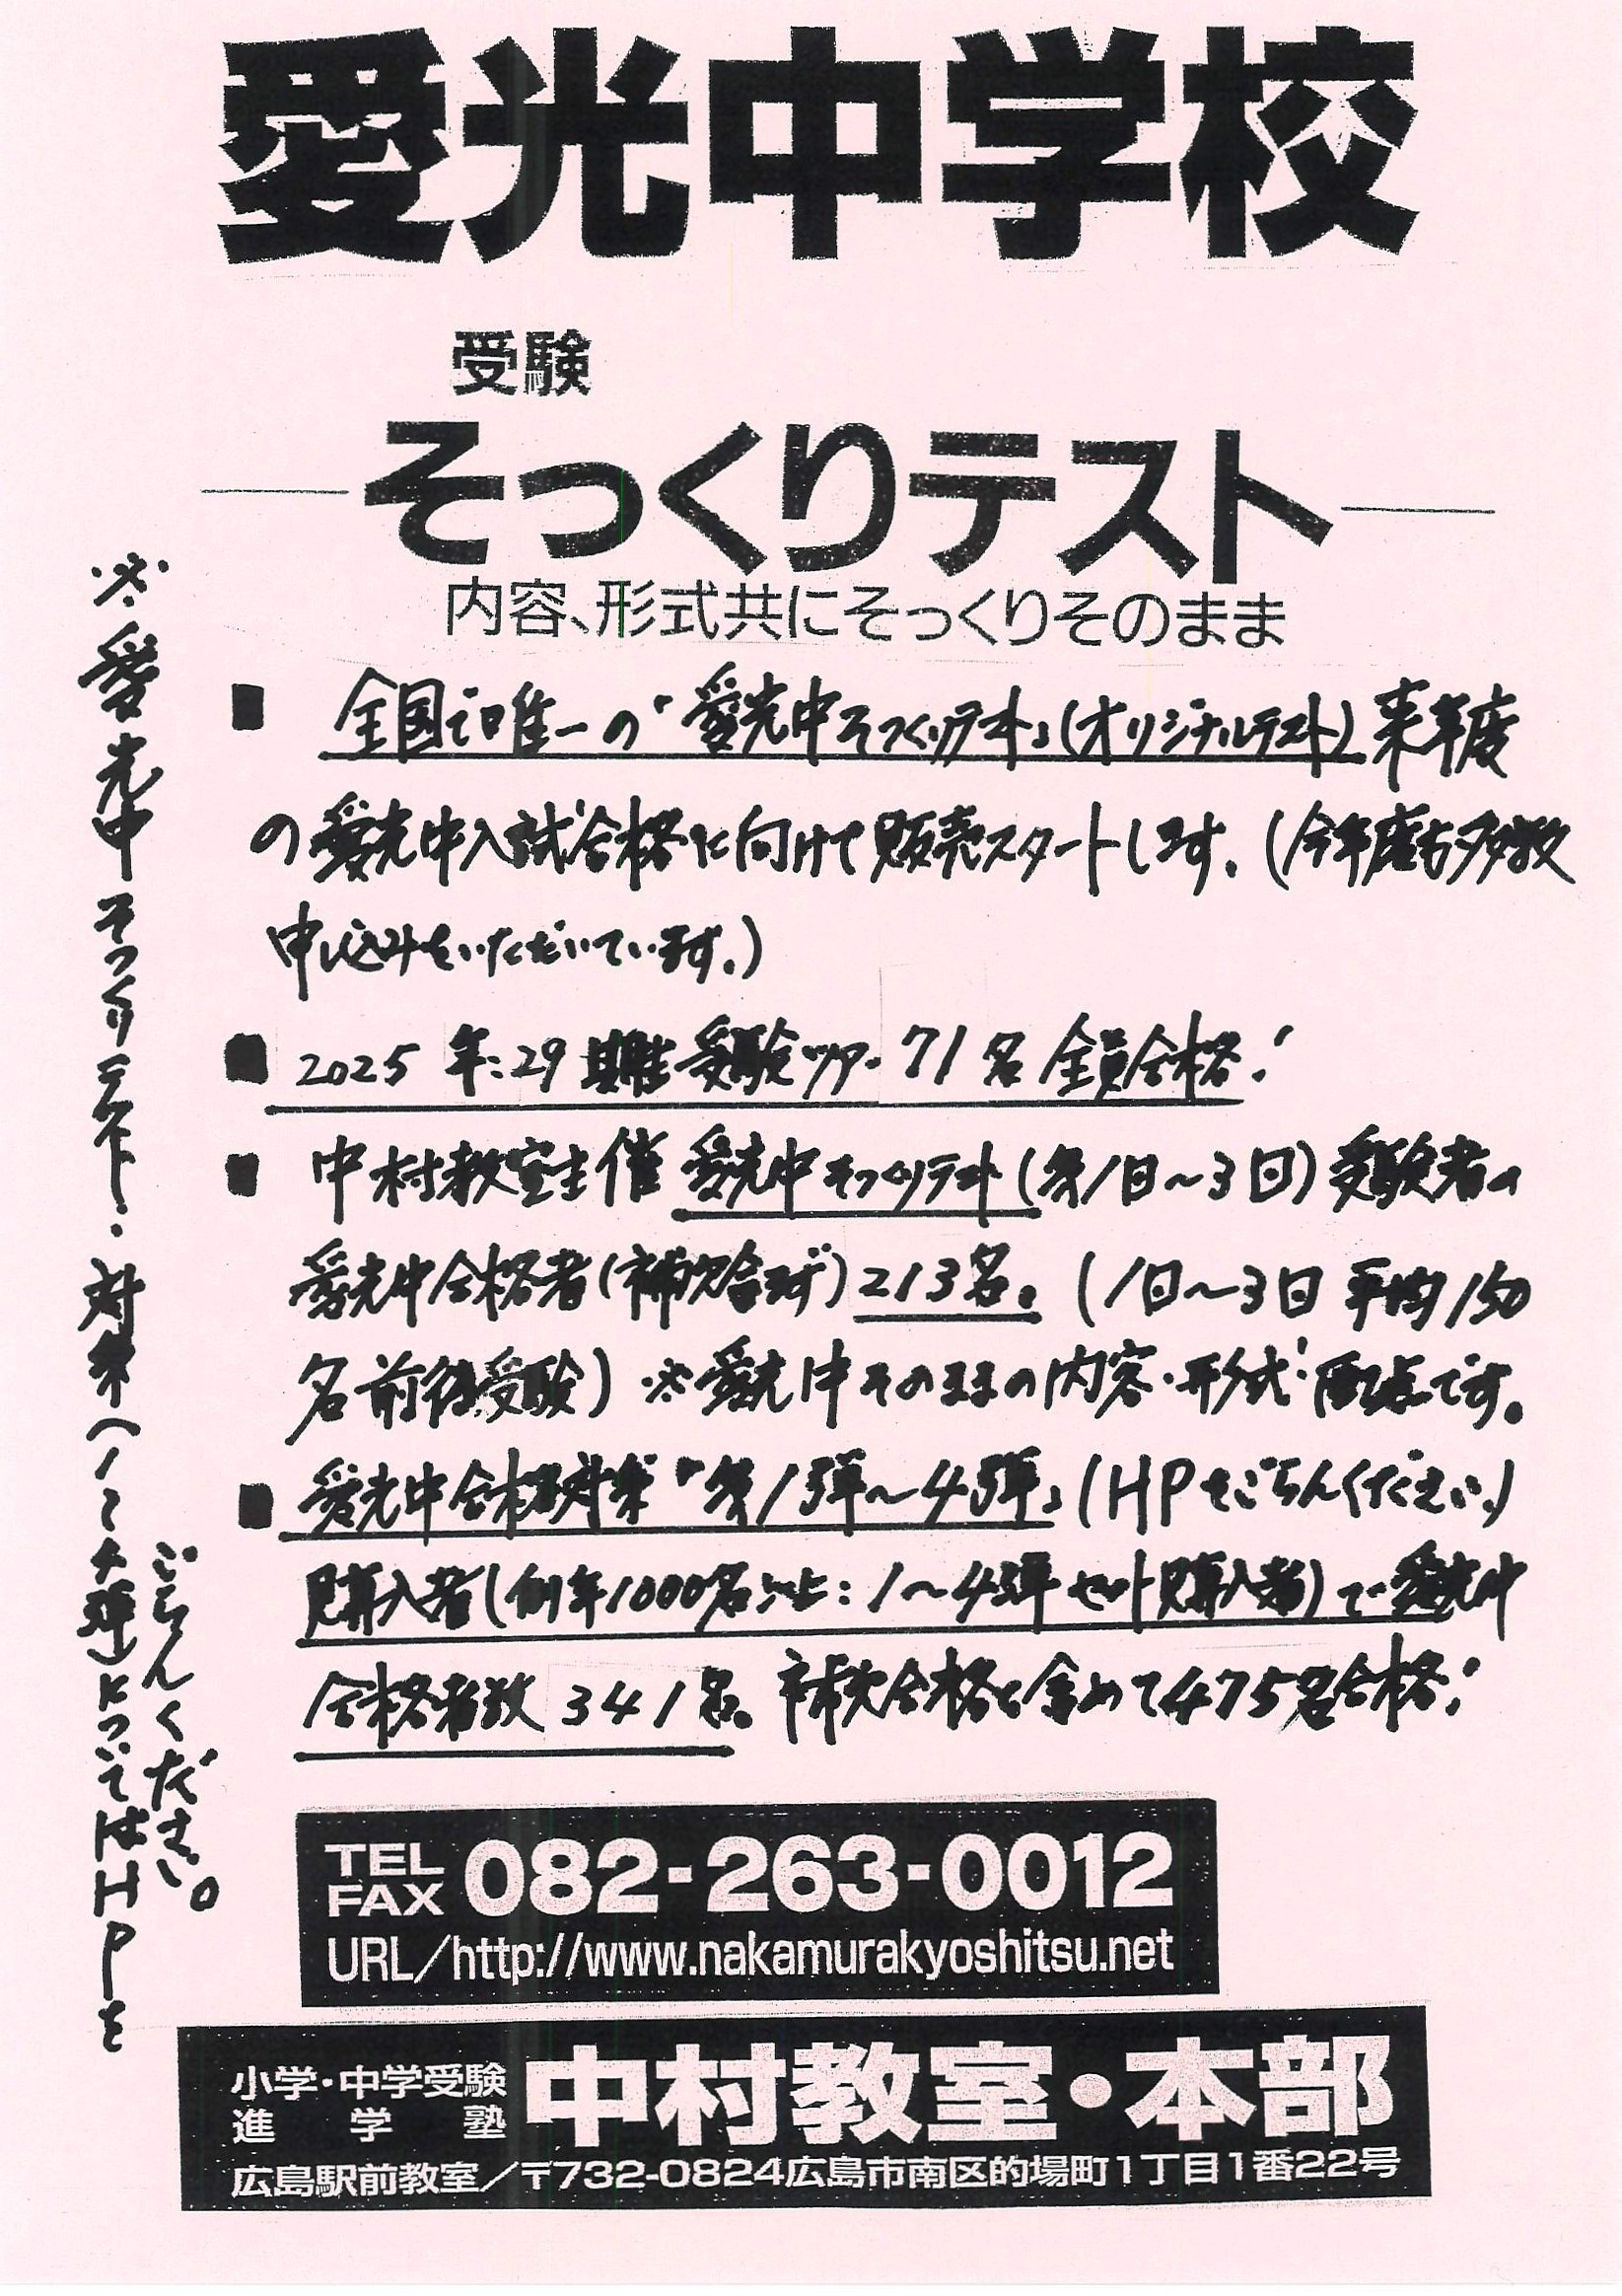 愛光中学校
受験
そっくりテスト
内容、形式共にそっくりそのまま
■ 全国で唯一の「愛光中そっくりテスト」(オリジナルテスト)来年度
の愛光中入試合格に向けて販売スタートします。(今年度も多数
申し込みをいただいています。)
■ 2025年:29期生受験ツアー71名全員合格!
■ 中村教室主催愛光中そっくりテスト(第1回～3回)受験者の
愛光中合格者(補欠含まず)213名。(1回～3回平均150
名前後受験)※愛光中そのままの内容・形式・配点です。
■ 愛光中合格対策『第1弾～4弾』(HPをごらんください)
購入者(例年1000名以上:1～4弾セット購入者)で愛光中
合格者数341名。補欠合格を含めて475名合格!
※愛光中そっくりテスト・対策(1～4弾)についてはHPを
ごらんください。
TEL
FAX 082-263-0012
URL／http://www.nakamurakyoshitsu.net
小学・中学受験
進学塾
中村教室・本部
広島駅前教室／〒732-0824広島市南区的場町1丁目1番22号